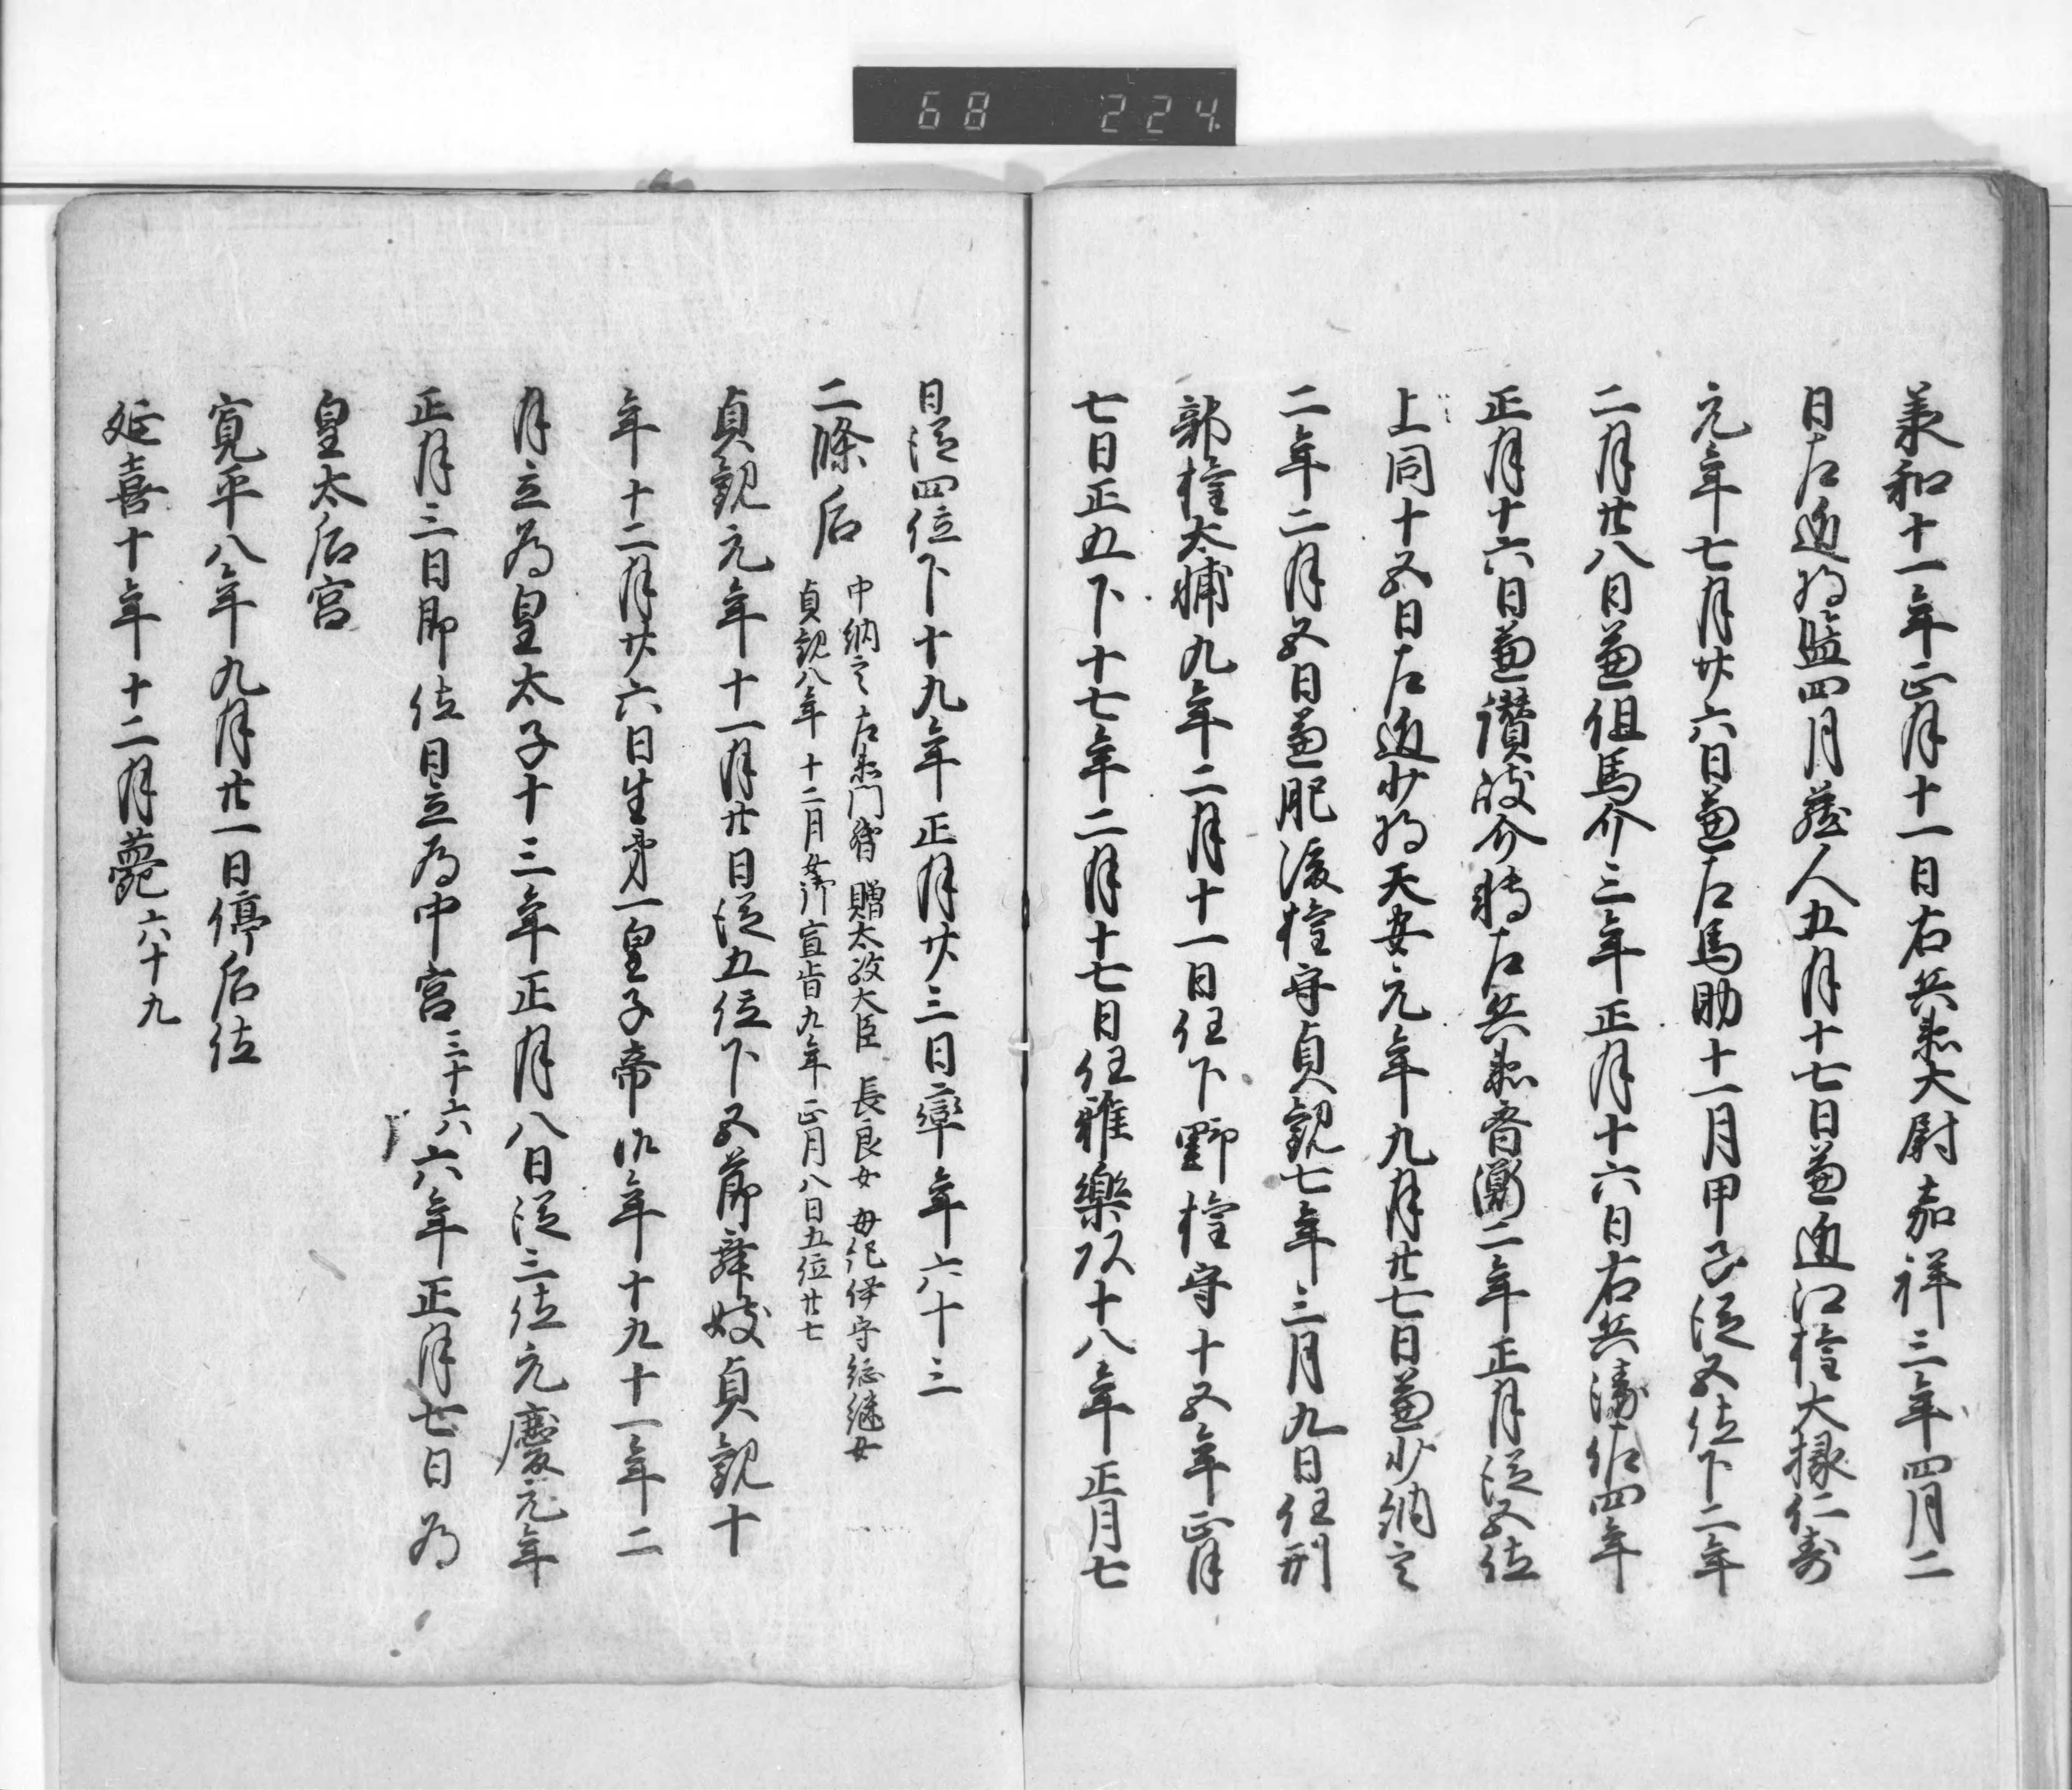 68 224
承和十一年正月十一日右兵衛大尉嘉祥三年四月二
日左近将監四月蔵人五月十七日兼近江権大掾仁寿
元年七月廿六日兼左馬助十一月甲子従五位下二年
二月廿八日兼但馬介三年正月十六日右兵衛佐四年
正月十六日兼讃岐介転左兵衛督斉衡二年正月従五位
上同十五日左近少将天安元年九月廿七日兼少納言
二年二月五日兼肥後権守貞観七年三月九日任刑
部権大輔九年二月十一日任下野権守十五年正月
七日正五下十七年二月十七日任雅楽頭十八年正月七
日従四位下十九年正月廿三日卒年六十三
二條后
中納言左衛門督贈太政大臣長良女母紀伊守総継女
貞観八年十二月女御宣旨九年正月八日五位廿七
貞観元年十一月廿日従五位下五節舞妓貞観十
年十二月廿六日生第一皇子帝御年十九十一年二
月立為皇太子十三年正月八日従三位元慶元年
正月三日即位日立為中宮三十六六年正月七日為
皇太后宮
寛平八年九月廿一日停后位
延喜十年十二月薨六十九